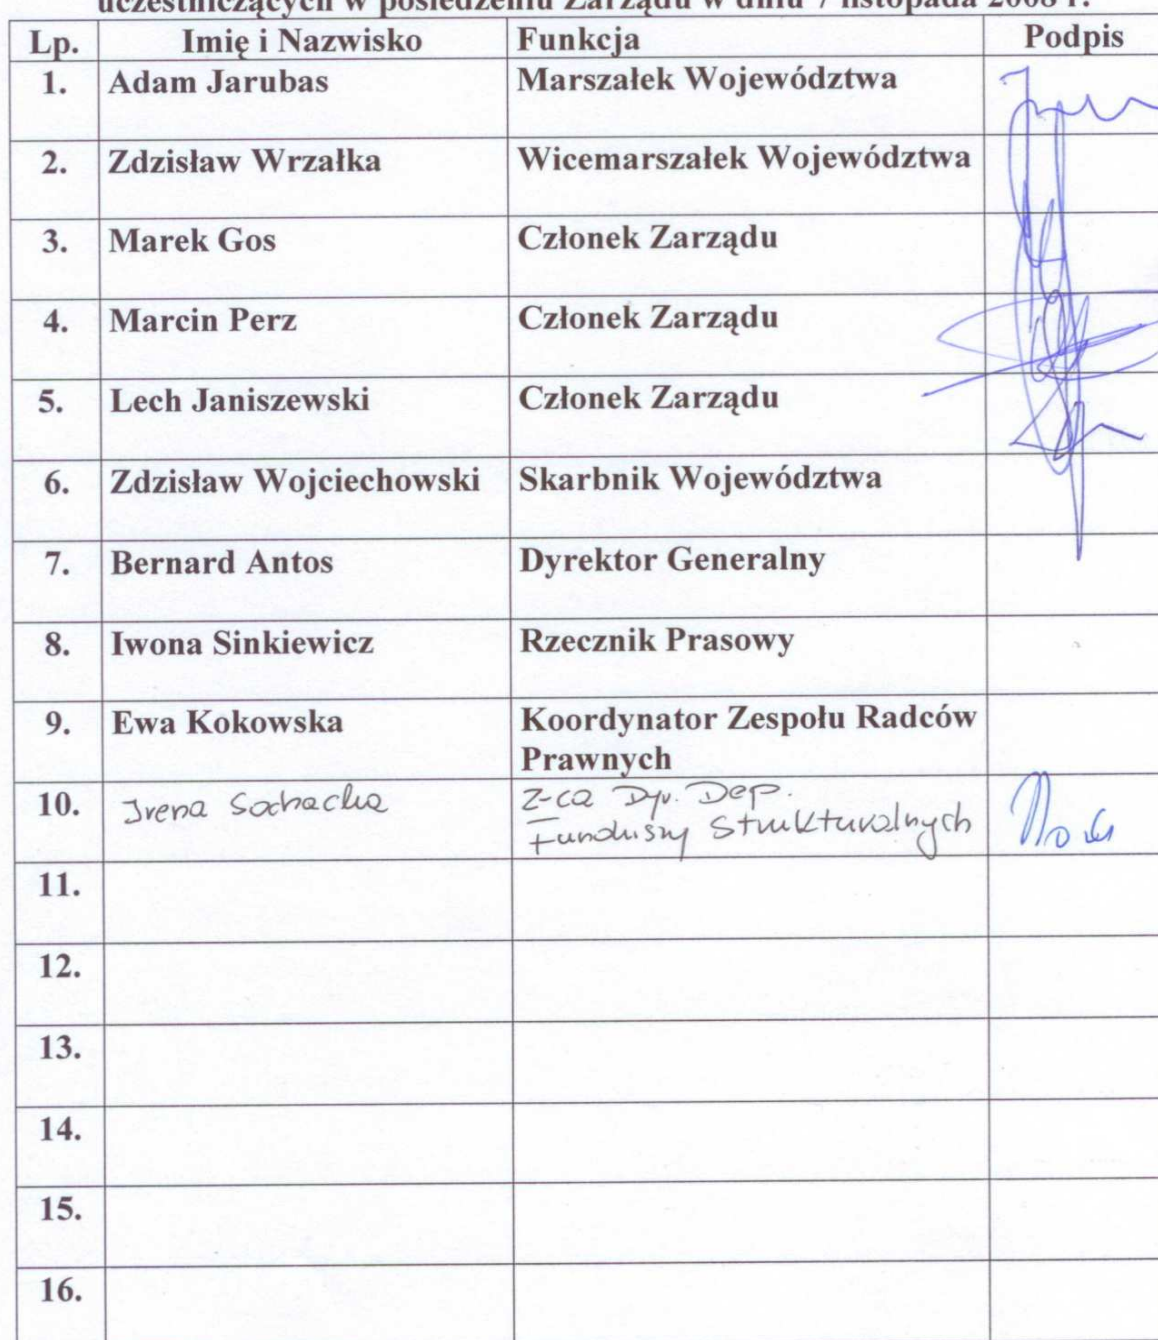 uczestniczących w posiedzeniu Zarządu w dniu 7 listopada 2008 r.
Lp. Imię i Nazwisko Funkcja Podpis
1. Adam Jarubas Marszałek Województwa
2. Zdzisław Wrzałka Wicemarszałek Województwa
3. Marek Gos Członek Zarządu
4. Marcin Perz Członek Zarządu
5. Lech Janiszewski Członek Zarządu
6. Zdzisław Wojciechowski Skarbnik Województwa
7. Bernard Antos Dyrektor Generalny
8. Iwona Sinkiewicz Rzecznik Prasowy
9. Ewa Kokowska Koordynator Zespołu Radców
Prawnych
10. Irena Sochacka Z-ca Dyr. Dep.
Funduszy Strukturalnych
11.
12.
13.
14.
15.
16.